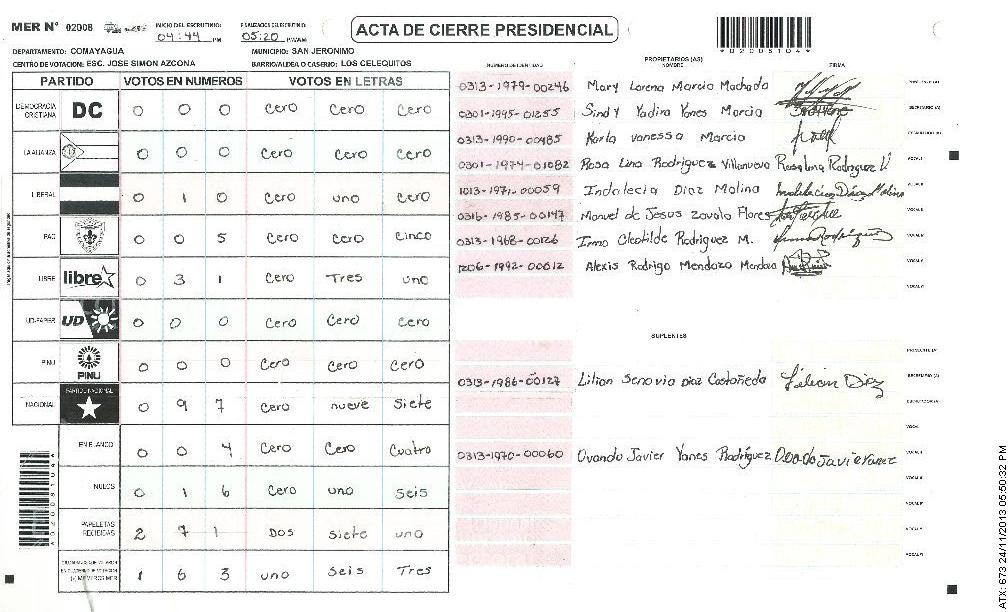 MER N° 02008 INICIO DEL ESCRUTINIO: 04:44 PM FINALIZACION DEL ESCRUTINIO: 05:20 PM/AM
ACTA DE CIERRE PRESIDENCIAL
DEPARTAMENTO: COMAYAGUA MUNICIPIO: SAN JERONIMO
CENTRO DE VOTACION: ESC. JOSE SIMON AZCONA BARRIO/ALDEA O CASERIO: LOS CELEQUITOS
PARTIDO VOTOS EN NUMEROS VOTOS EN LETRAS
DEMOCRACIA CRISTIANA DC 0 0 0 Cero Cero Cero
LA ALIANZA 0 0 0 Cero Cero Cero
LIBERAL 0 1 0 Cero uno Cero
PAC 0 0 5 Cero Cero Cinco
LIBRE libre 0 3 1 Cero Tres uno
UD-FAPER UD 0 0 0 Cero Cero Cero
PINU PINU 0 0 0 Cero Cero Cero
NACIONAL PARTIDO NACIONAL 0 9 7 Cero nueve Siete
EN BLANCO 0 0 4 Cero Cero Cuatro
NULOS 0 1 6 Cero uno Seis
PAPELETAS RECIBIDAS 2 7 1 Dos Siete uno
1 6 3 uno Seis Tres
NUMERO DE IDENTIDAD PROPIETARIOS (AS) NOMBRE FIRMA
0313-1979-00246 Mary Lorena Marcia Machado
0301-1995-01255 Sindy Yadira Yanes Marcia
0313-1990-00485 Karla vanessa Marcia
0301-1974-01082 Rosa Lina Rodriguez Villanueva Rosalina Rodriguez V
1013-1971-00059 Indalecia Diaz Molina Indalecia Diaz Molina
0316-1985-00147 Manuel de Jesus Zavala Flores
0313-1968-00126 Irma Cleotilde Rodriguez M. Irma Rodriguez
1206-1992-00012 Alexis Rodrigo Mendoza Mendoza
SUPLENTES
0313-1986-00127 Lilian Senovia Diaz Castañeda Lilian Diaz
0313-1970-00060 Ovando Javier Yanes Rodríguez Ovando Javier Yanez
ATX: 673 24/11/2013 05:50:32 PM